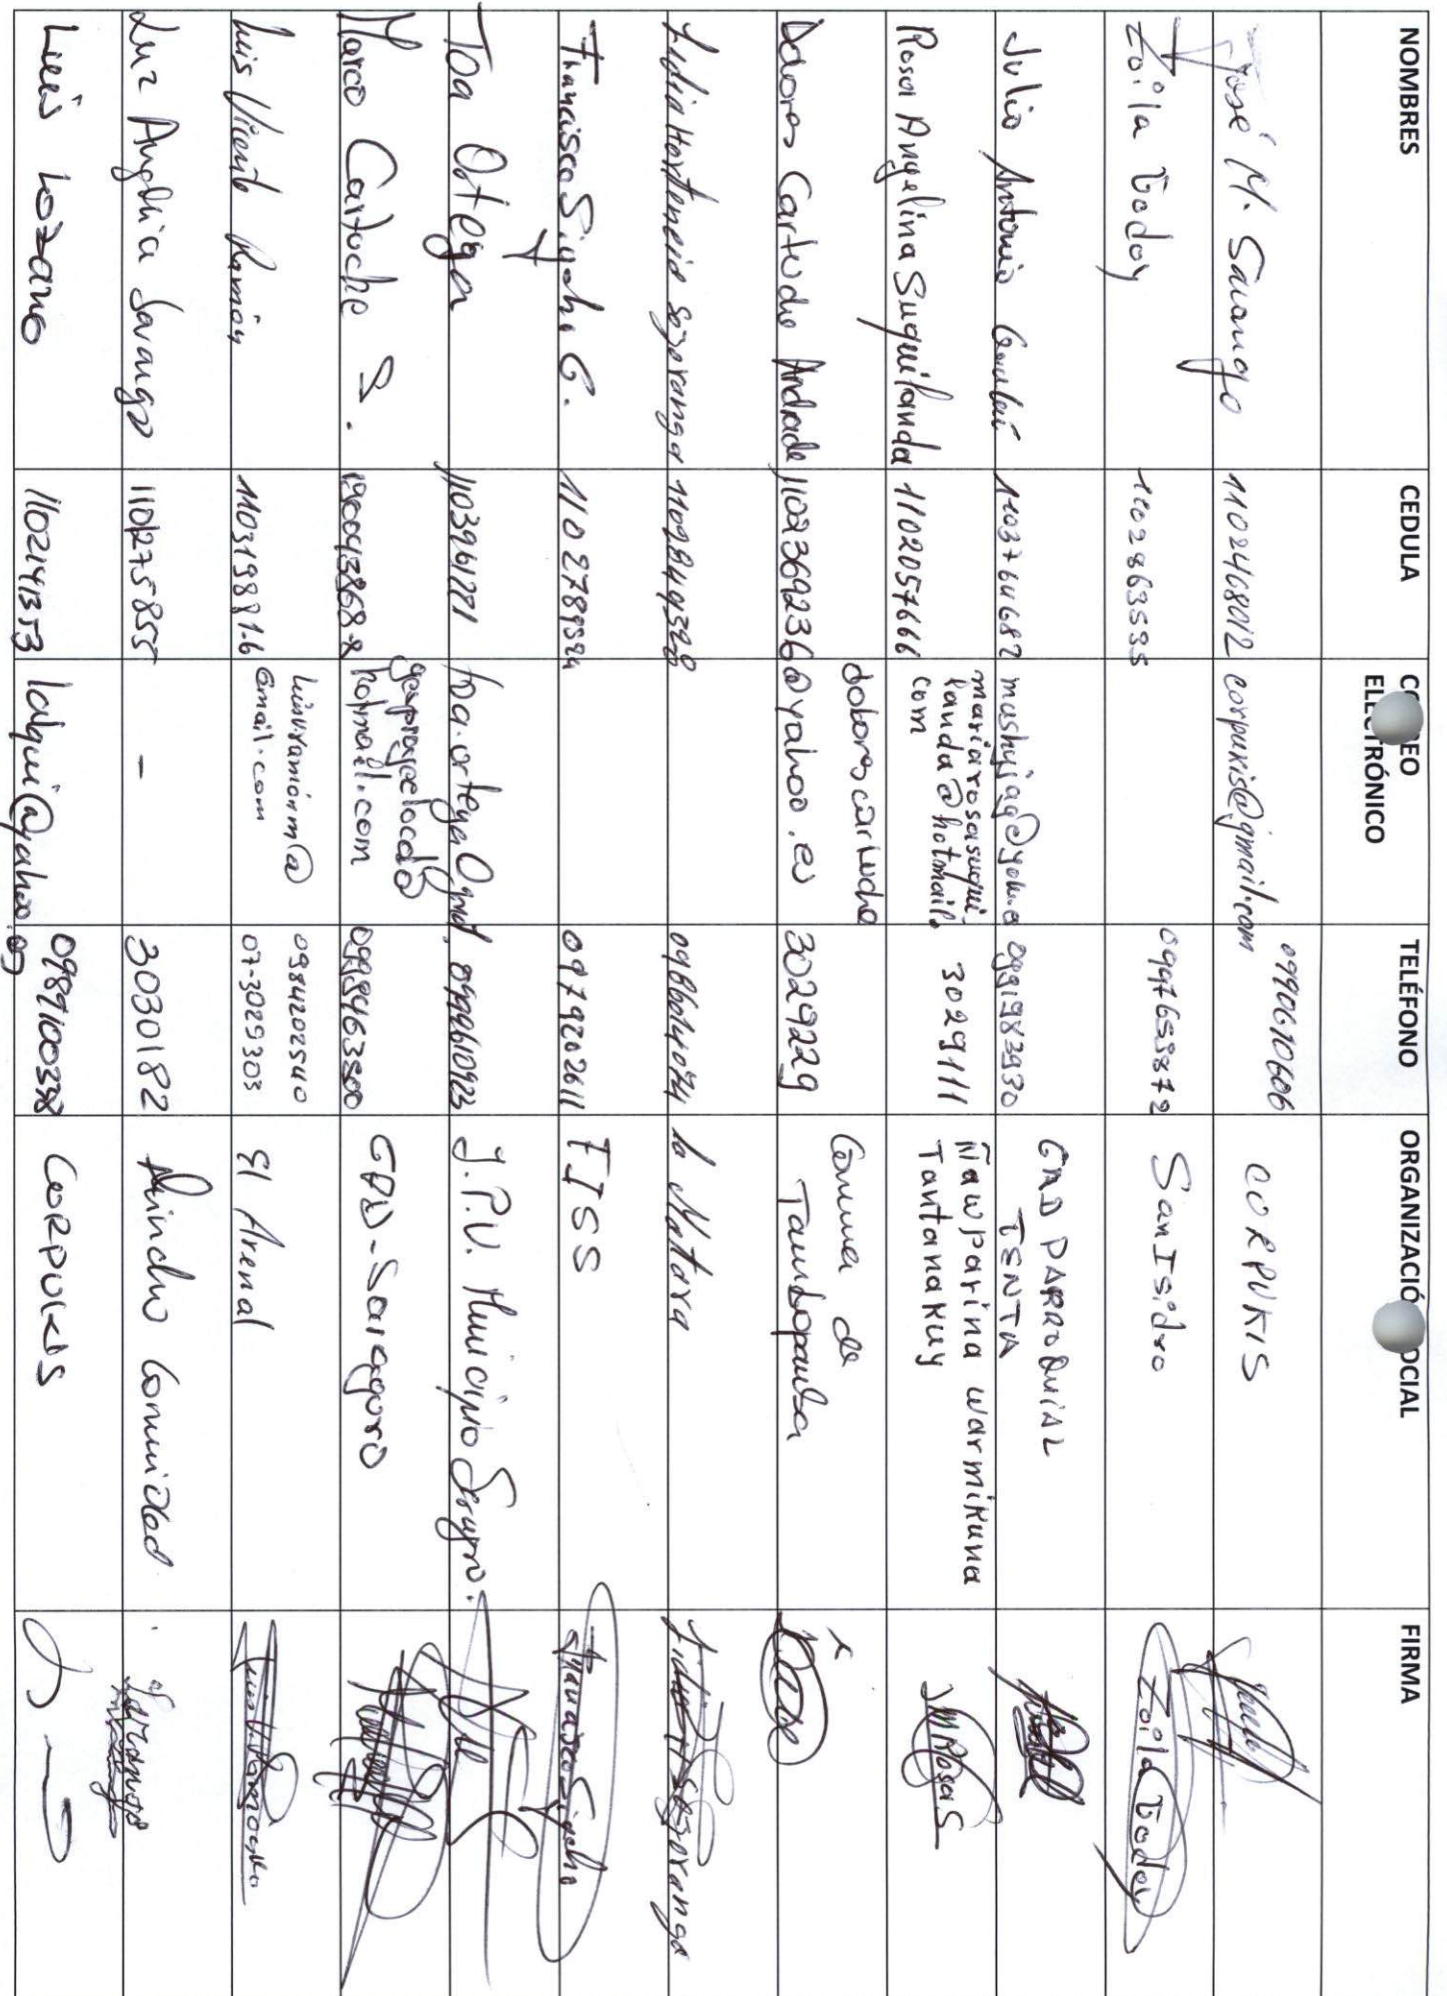 NOMBRES CEDULA CORREO ELECTRÓNICO TELÉFONO ORGANIZACIÓ OCIAL FIRMA
José M. Sarango 1102468012 corpukis@gmail.com 0990610606 CORPUKIS
Zoila Godoy 1102863535 0997653872 San Isidro Zoila Godoy
Julio Antonio 1103764687 0991983930 GAD PARROQUIAL
TENTA
Rosa Angelina Suquilanda 1102057666 mariarosasuqui-
landa@hotmail.
com 3029111 Ñawparina warmikuna
Tantanakuy M Rosa S
Dolores Cartuche Andrade 1102369236 dolorescartuche
@yahoo.es 3029229 Comuna de
Tambopamba
Lidia Hortencia Sozoranga 1102849328 la Matara Lidia H Sozoranga
Francisco Sigcho G. 1102789324 0979202611 FISS Francisco Sigcho
Toa Ortega 1103961771 toa.ortega@gmail. J.P.V. Municipio Saraguro.
Marco Cartuche S. hotmail.com GAD-Saraguro
Luis Vicente Ramón 110319881-6 luisviramónm@
Gmail.com 0984202540
07-3029303 El Arenal
Luz Angélica Sarango 1101275855 - 3030182 Quincho Comunidad
Luis Lozano 1102141353 lalqui@yahoo.es 0989100338 CORPUKIS